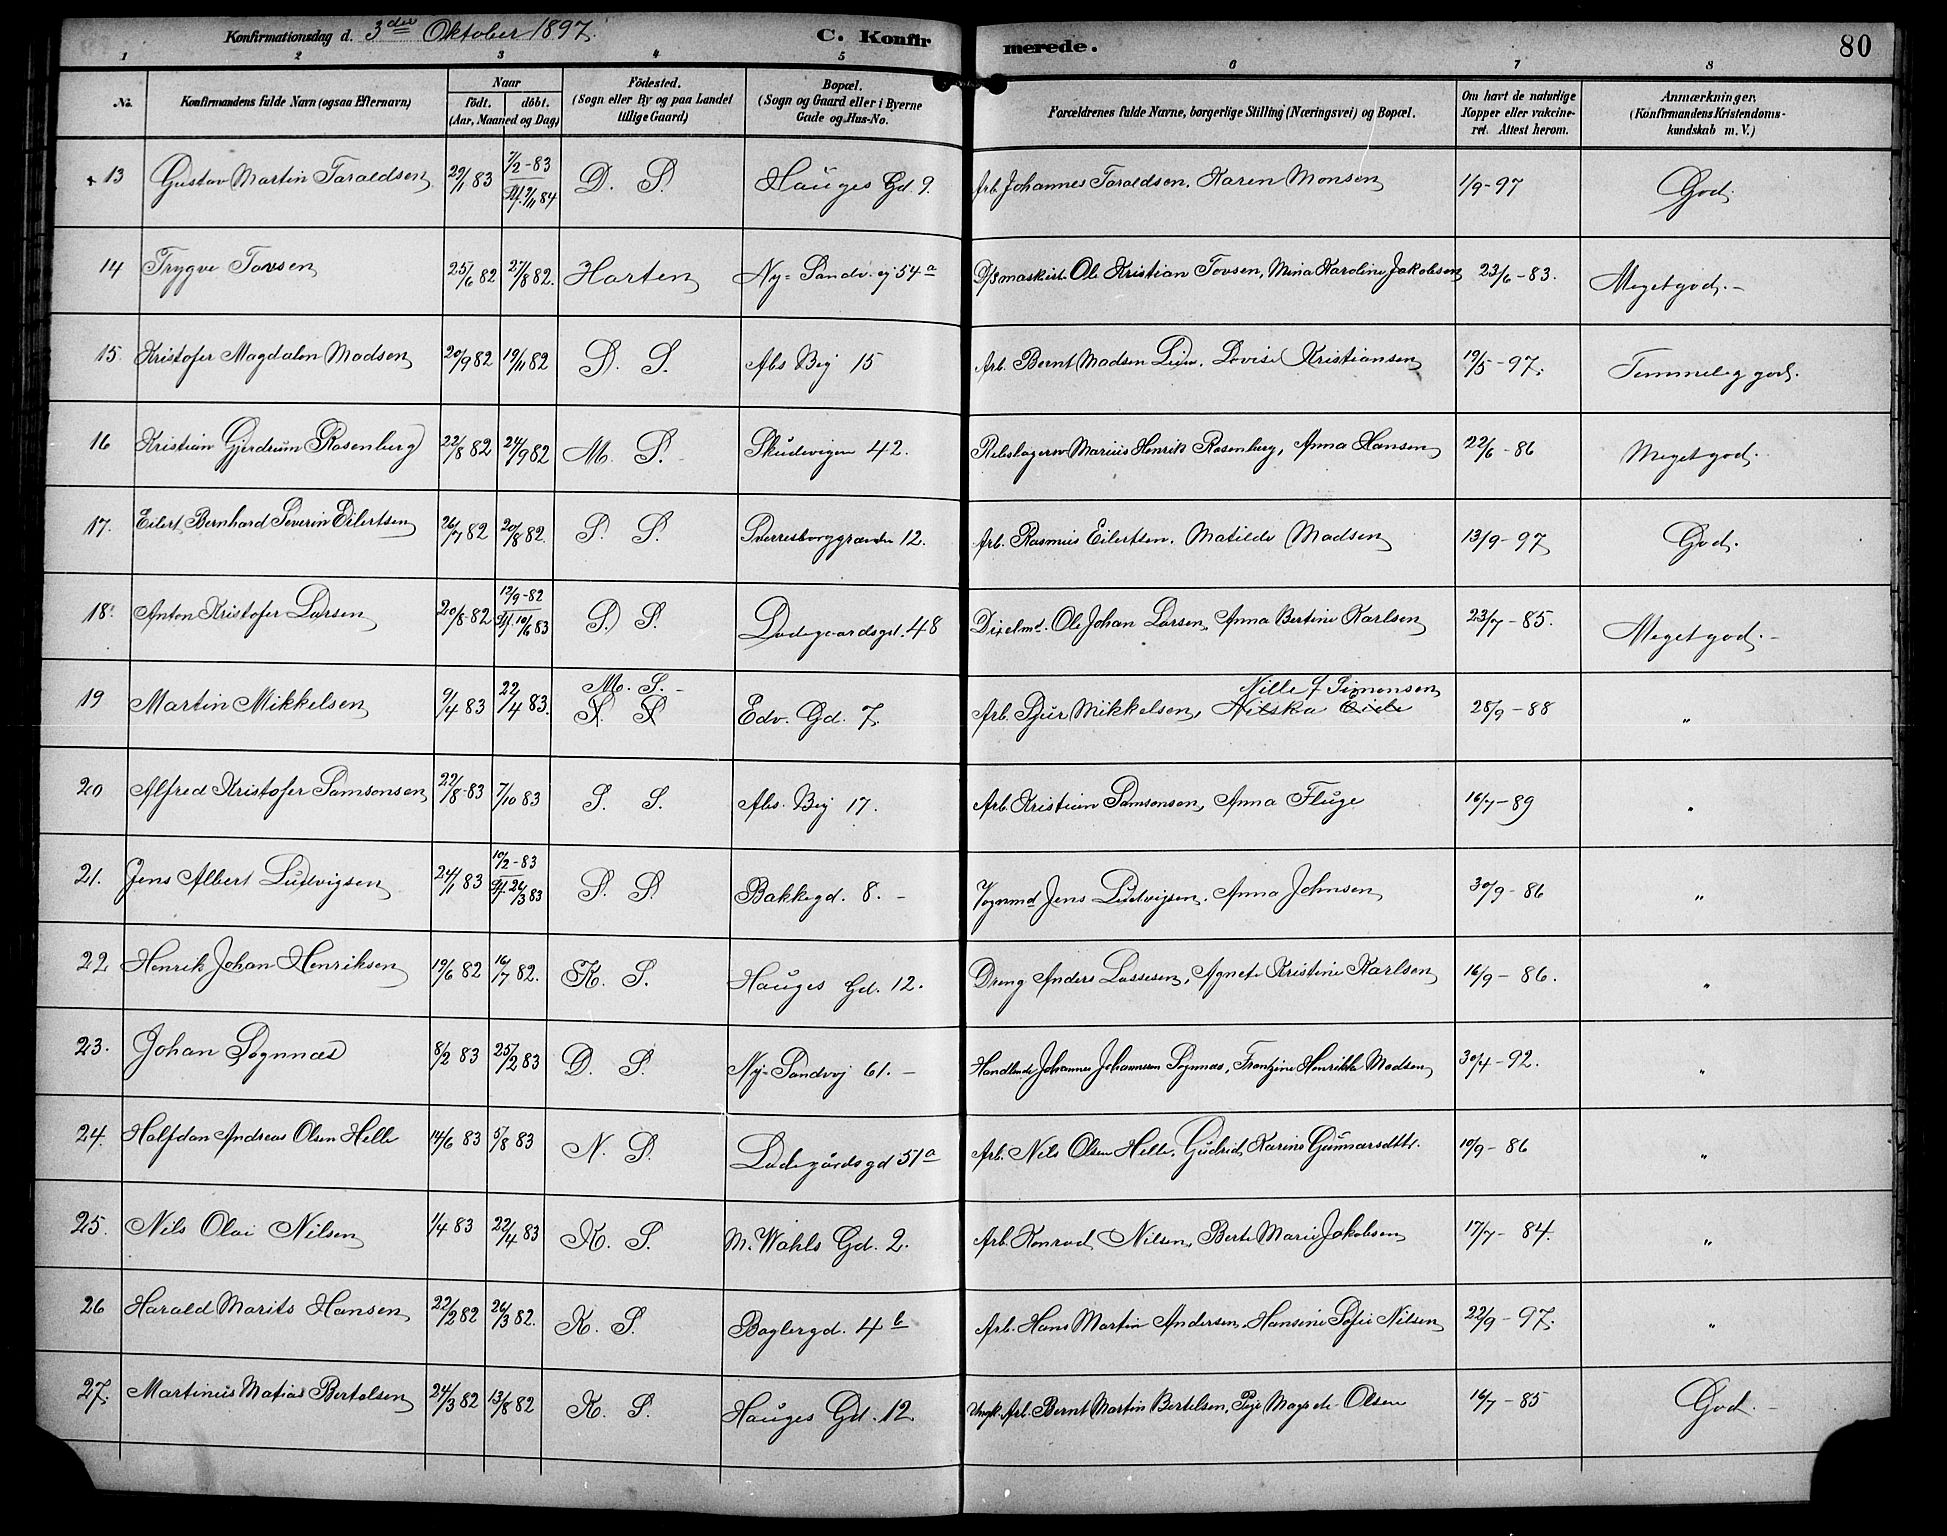 Konfirmationsdag d. 3die Oktober 1897. C. Konfirmerede. 80
1 2 3 4 5 6 7 8
No. Konfirmandens fulde Navn (ogsaa Efternavn) Naar födt. döbt. (Aar, Maaned og Dag) Födested. (Sogn eller By og paa Landet tillige Gaard) Bopæl. (Sogn og Gaard eller i Byerne Gade og Hus-No. Forældrenes fulde Navne, borgerlige Stilling (Næringsvei) og Bopæl. Om havt de naturlige Kopper eller vakcineret. Attest herom. Anmærkninger. (Konfirmandens Kristendomskundskab m. V.)
+ 13 Gustav Martin Taraldsen 29/1 83 7/2-83 St. 9/11 84 D. S. Hauges Gd. 9. Arb. Johannes Taraldsen, Karen Monsen 1/9-97 God.
14 Trygve Tovsen 25/6 82 27/8 82. Horten Ny-Sandv.ej 54a D/Smaskist Ole Kristian Tovsen, Mina Karoline Jakobsen 23/6-83. Meget god.-
15. Kristofer Magdalon Madsen 20/9 82 19/11 82 S. S. Abs Vej 15 Arb. Bernt Madsen Lien, Lovise Kristiansen 19/5-97. Temmelig god.
16 Kristian Gjerdrum Rosenberg 22/8 82 24/9 82 M. S. Skudevigen 42. Rebslagersv Marius Henrik Rosenberg, Anna Hansen 22/6-86 Meget god.
17. Eilert Bernhard Severin Eilertsen 26/7 82 20/8 82. S. S. Sverresborggranden 12. Arb. Rasmus Eilertsen, Matilde Madsen 13/9-97 God.
18. Anton Kristofer Larsen 20/8-82 13/9-82 St. 10/6 83 S. S. Ladegaardsgd. 48 Dixelmd. Ole Johan Larsen, Anna Bertine Karlsen 23/7-85. Meget god.-
19 Martin Mikkelsen 9/4 83 22/4 83. M. S.- S. S. Edv. Gd. 7. Arb. Sjur Mikkelsen, Nilska Eide Nille J Simonsen 28/9-88 "
20 Alfred Kristofer Samsonsen 22/8-83 7/10 83 S. S. Abs. Vej 17. Arb. Kristian Samsonsen, Anna Fluge 16/7-89 "
21. Jens Albert Ludvigsen 24/1 83 10/2-83 St. 26/3 83 S. S. Bakkegd. 8.- Vognmd Jens Ludvigsen, Anna Johnsen 30/9-86 "
22 Henrik Johan Henriksen 19/6 82 16/7 82. K. S. Hauges Gd. 12. Dreng Anders Lassesen, Agnete Kristine Karlsen 16/9-86. "
23. Johan Sognnæs 8/2 83 25/2 83 D. S. Ny-Sandvj 61.- Handlende Johannes Johannesen Sognnæs, Frantzine Henrikke Madsen 30/4-92. "
24. Halfdan Andreas Olsen Helle 14/6 83 5/8 83 N. S. Ladegårdsgd 51a Arb. Nils Olsen Helle, Gudrid Karine Gunnarsdttr. 10/9-86 "
25. Nils Olai Nilsen 1/4 83 22/4 83 K. S. M. Wahls Gd. 2. Arb. Konrad Nilsen, Berte Marie Jakobsen 17/7-84. "
26 Harald Marits Hansen 22/2 82 26/3 82. K. S. Baglergd. 4b Arb. Hans Martin Andersen, Hansine Sofie Nilsen 22/9-97. "
27. Martinus Matias Bertelsen 24/3 82 13/8 82 K. S. Hauges Gd. 12. Arb. Bernt Martin Bertelsen, Magrete Olsen 16/7-85 God.-